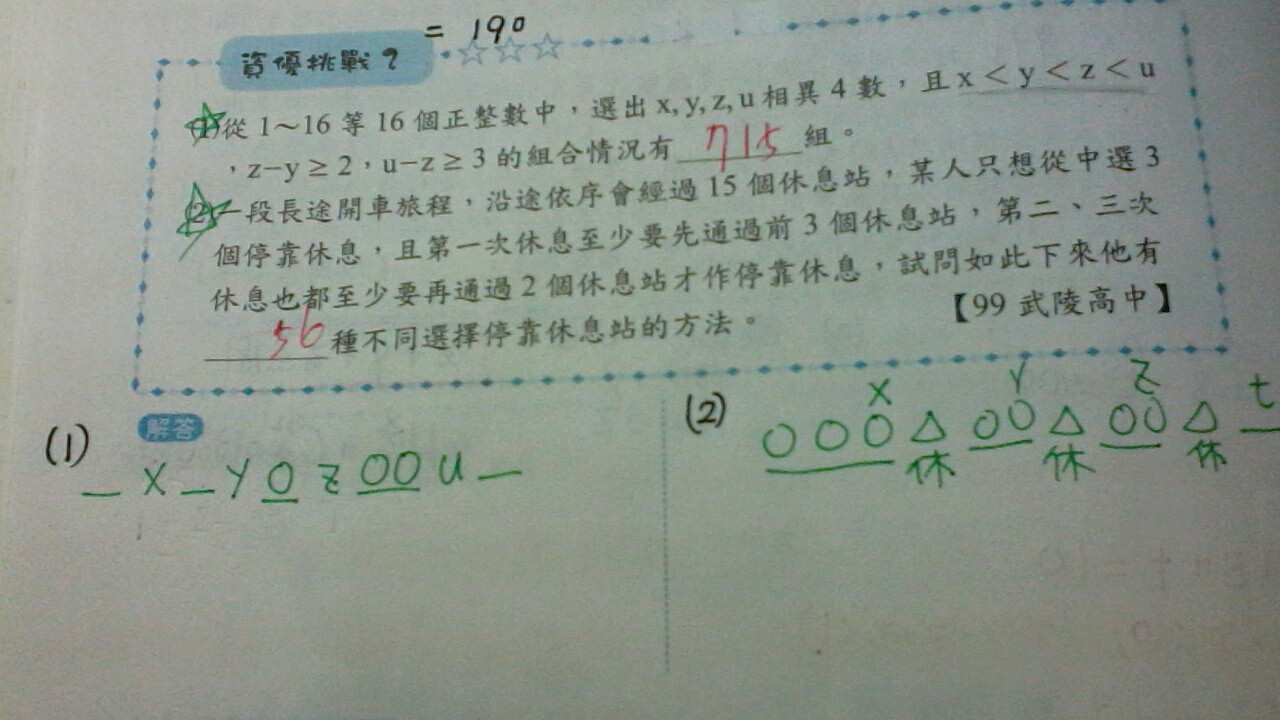 = 190
資優挑戰 9 ☆☆☆
(1)從 1～16 等 16 個正整數中，選出 x, y, z, u 相異 4 數，且 x < y < z < u
，z−y ≥ 2，u−z ≥ 3 的組合情況有 715 組。
(2)一段長途開車旅程，沿途依序會經過 15 個休息站，某人只想從中選 3
個停靠休息，且第一次休息至少要先通過前 3 個休息站，第二、三次
休息也都至少要再通過 2 個休息站才作停靠休息，試問如此下來他有
56 種不同選擇停靠休息站的方法。 【99 武陵高中】
(1) 解答
_ X _ y O z OO u _
(2)
X Y Z t
O O O △ OO △ OO △ _
休 休 休